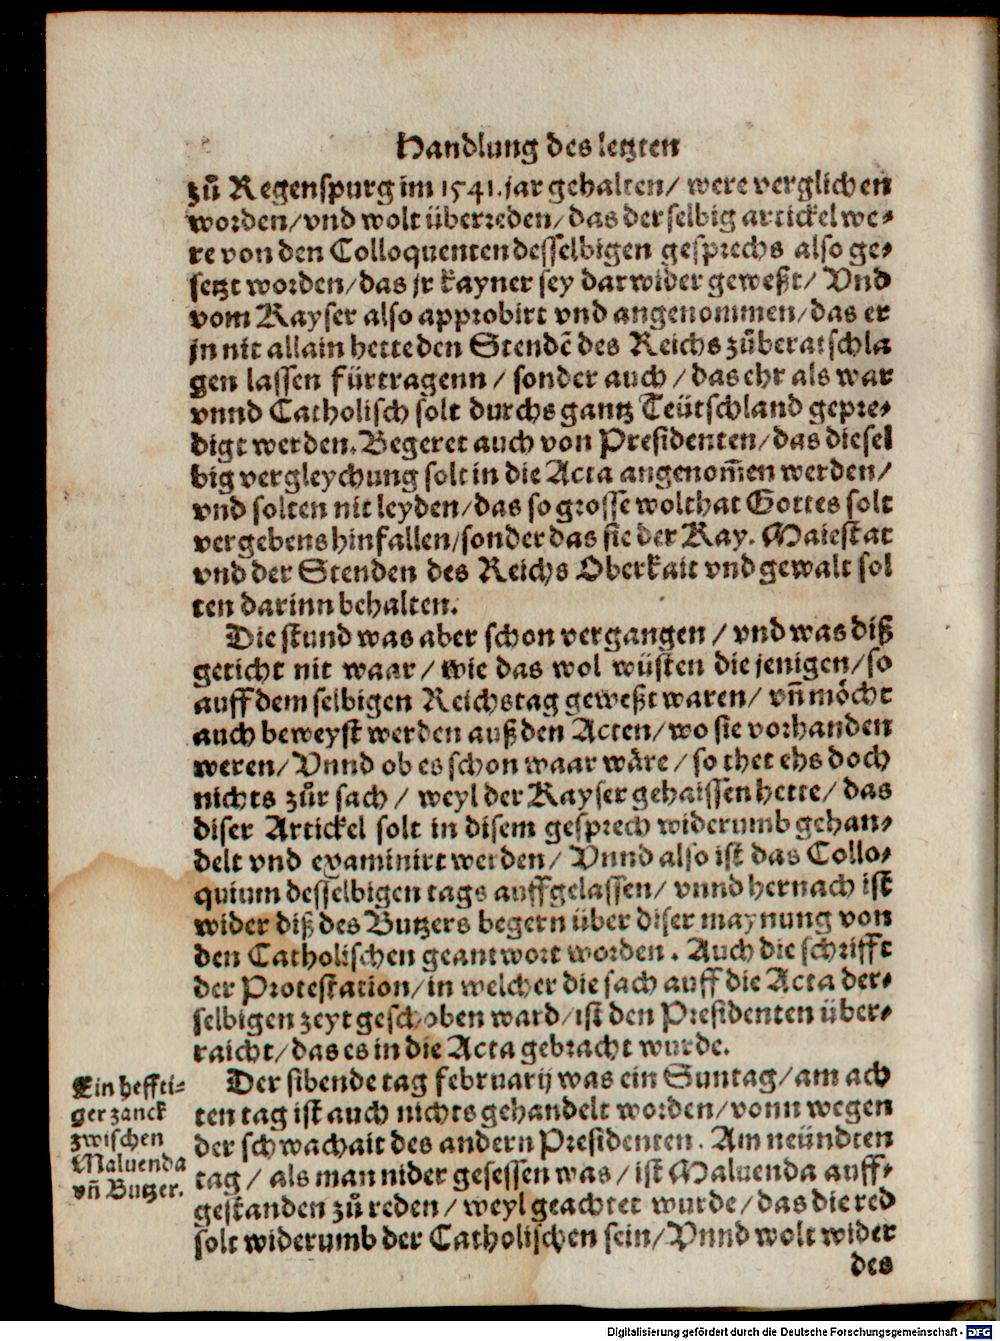 Handlung des letzten
zů Regenspurg im 1541. jar gehalten/ were verglichen
worden/ vnd wolt überreden/ das der selbig artickel we⸗
re von den Colloquenten desselbigen gesprechs also ge⸗
setzt worden/ das jr kayner sey darwider geweßt/ Vnd
vom Kayser also approbirt vnd angenommen/ das er
jn nit allain hette den Stendē des Reichs zůberatschla
gen lassen fürtragenn/ sonder auch/ das ehr als war
vnnd Catholisch solt durchs gantz Teütschland gepre⸗
digt werden. Begeret auch von Presidenten/ das diesel
big vergleychung solt in die Acta angenom̄en werden/
vnd solten nit leyden/ das so grosse wolthat Gottes solt
vergebens hinfallen/ sonder das sie der Kay. Maiestat
vnd der Stenden des Reichs Oberkait vnd gewalt sol
ten darinn behalten.
Die stund was aber schon vergangen/ vnd was diß
geticht nit waar/ wie das wol wüsten die jenigen/ so
auff dem selbigen Reichstag geweßt waren/ vn̄ möcht
auch beweyst werden auß den Acten/ wo sie vorhanden
weren/ Vnnd ob es schon waar wäre/ so thet ehs doch
nichts zůr sach/ weyl der Kayser gehaissen hette/ das
diser Artickel solt in disem gesprech widerumb gehan⸗
delt vnd examinirt werden/ Vnnd also ist das Collo⸗
quium desselbigen tags auffgelassen/ vnnd hernach ist
wider diß des Butzers begern über diser maynung von
den Catholischen geantwort worden. Auch die schrifft
der Protestation/ in welcher die sach auff die Acta der⸗
selbigen zeyt geschoben ward/ ist den Presidenten über⸗
raicht/ das es in die Acta gebracht wurde.
Ein heffti⸗
ger zanck
zwischen
Maluenda
vn̄ Butzer.
Der sibende tag februarij was ein Suntag/ am ach
ten tag ist auch nichts gehandelt worden/ vonn wegen
der schwachait des andern Presidenten. Am neündten
tag/ als man nider gesessen was/ ist Maluenda auff⸗
gestanden zů reden/ weyl geachtet wurde/ das die red
solt widerumb der Catholischen sein/ Vnnd wolt wider
des
Digitalisierung gefördert durch die Deutsche Forschungsgemeinschaft - DFG